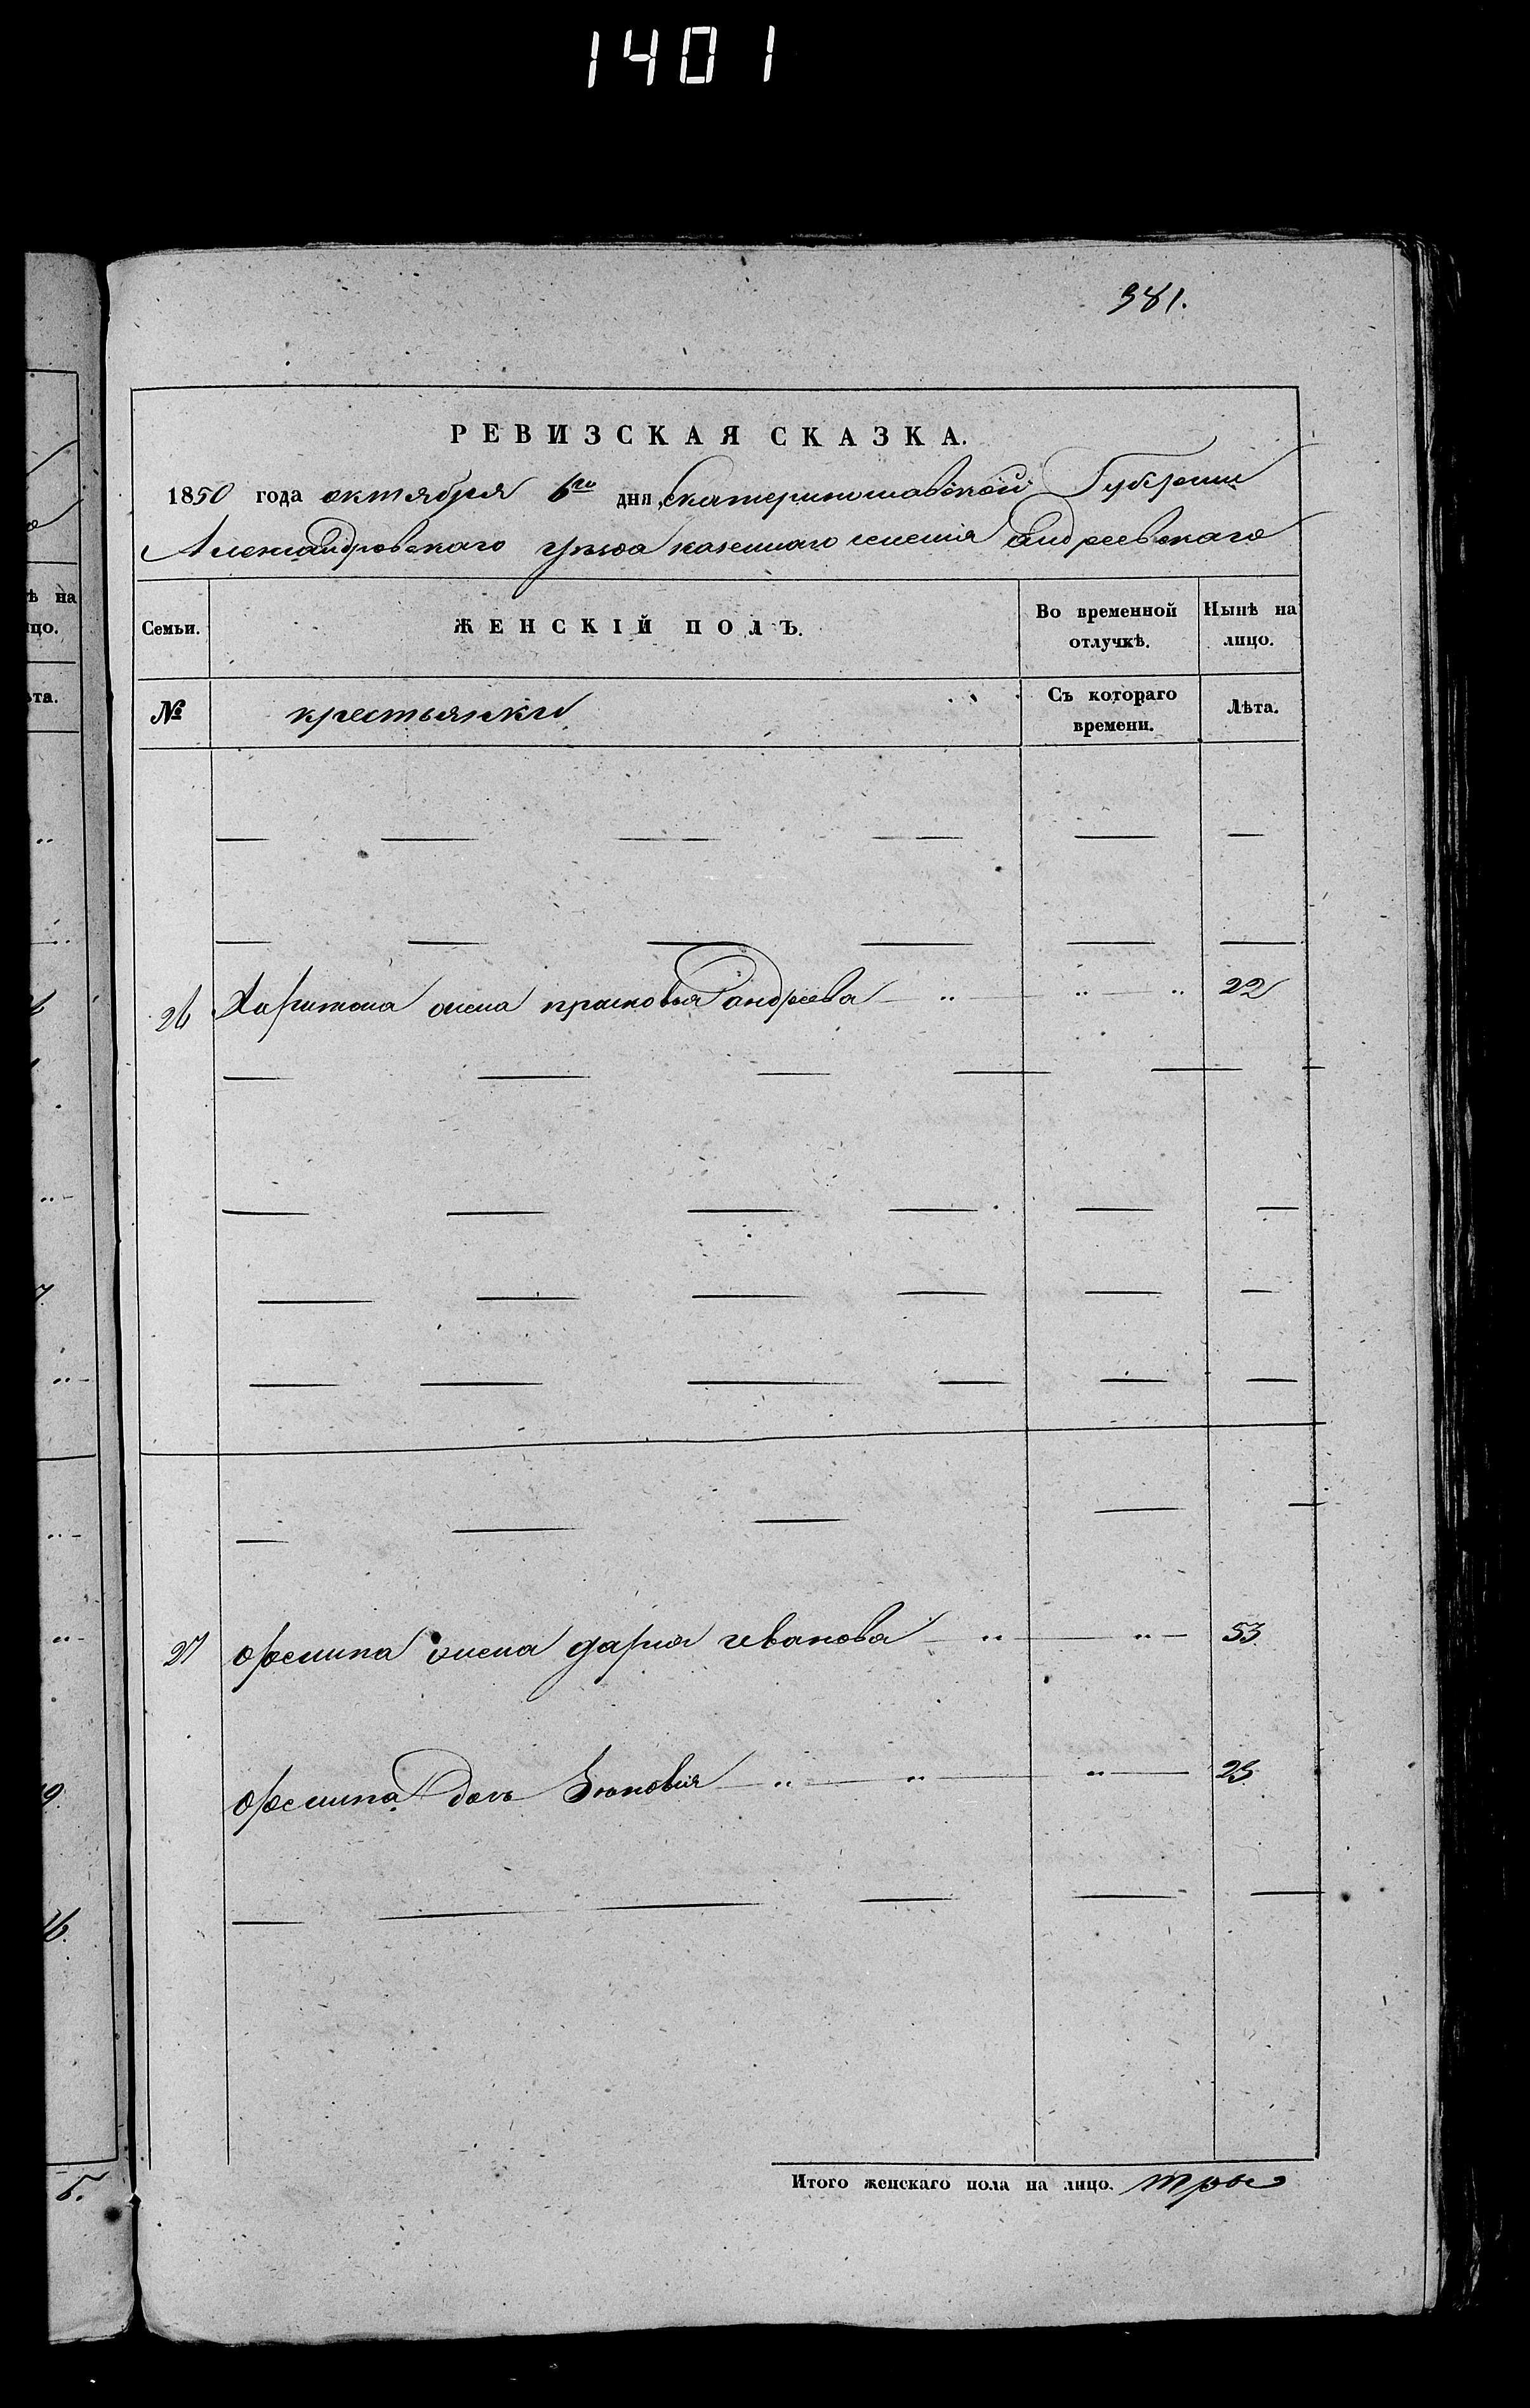 1401
381.
РЕВИЗСКАЯ СКАЗКА.
1850 года октября 6го дня Екатеринославской Губернии
Александровского уезда казенного селения Андреевского
Семьи.
ЖЕНСКІЙ ПОЛЪ.
Во временной
отлучкѣ.
Нынѣ на
лицо.
№
крестьянки
Съ котораго
времени.
Лѣта.
26 Харитона жена прасковья андреева 22
27 жена дарья иванова 53
дочь 23
Итого женскаго пола на лицо. три